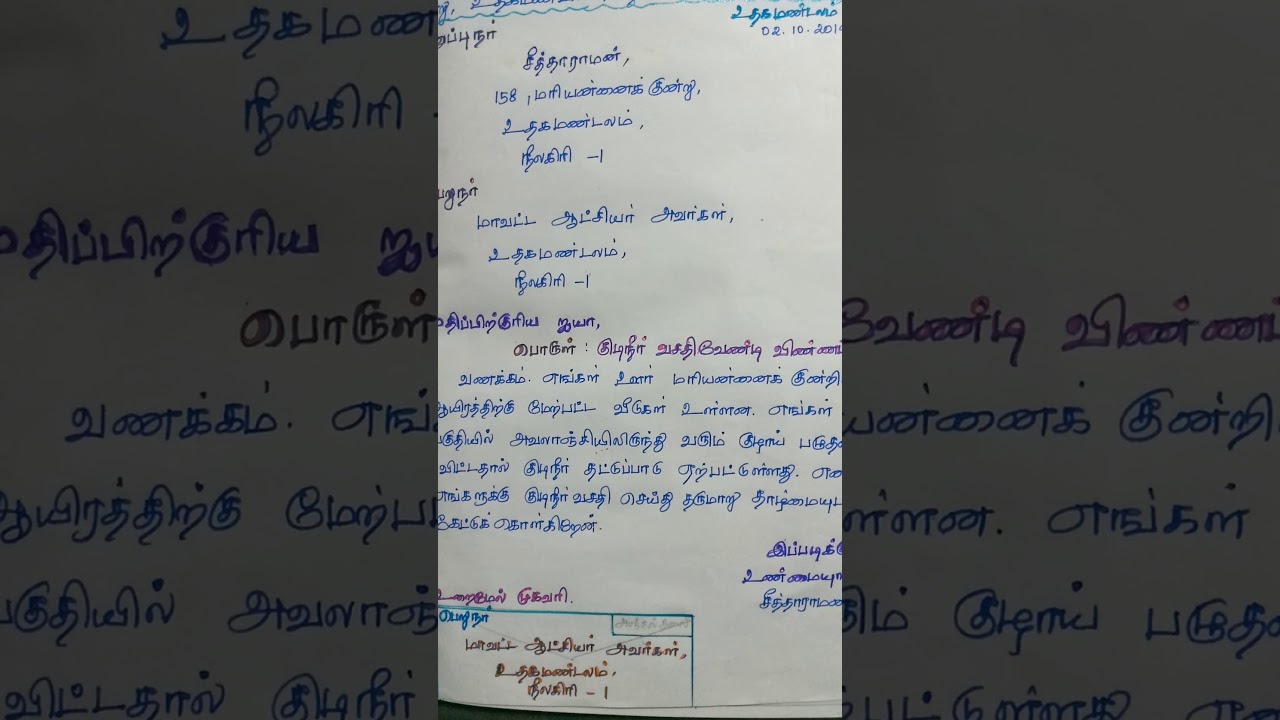 உதகமண்டலம்
02.10.2019
அனுப்புநர்
சீத்தாராமன்,
158, மரியன்னைக் குன்று,
உதகமண்டலம்,
நீலகிரி -1
பெறுநர்
மாவட்ட ஆட்சியர் அவர்கள்,
உதகமண்டலம்,
நீலகிரி -1
மதிப்பிற்குரிய ஐயா,
பொருள் : குடிநீர் வசதிவேண்டி விண்ணப்
வணக்கம். எங்கள் ஊர் மரியன்னைக் குன்றி
ஆயிரத்திற்கு மேற்பட்ட வீடுகள் உள்ளன. எங்கள்
பகுதியில் அவலாஞ்சியிலிருந்து வரும் குழாய் பழுத
விட்டதால் குடிநீர் தட்டுப்பாடு ஏற்பட்டுள்ளது. என
எங்களுக்கு குடிநீர் வசதி செய்து தருமாறு தாழ்மையுட
கேட்டுக் கொள்கிறேன்.
இப்படிக்கு
உண்மையு
சீத்தாராமன்
உறைமேல் முகவரி.
பெறுநர்
அஞ்சல் தலை
மாவட்ட ஆட்சியர் அவர்கள்,
உதகமண்டலம்,
நீலகிரி -1